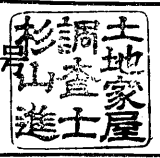 土地家屋
調査士
杉山進